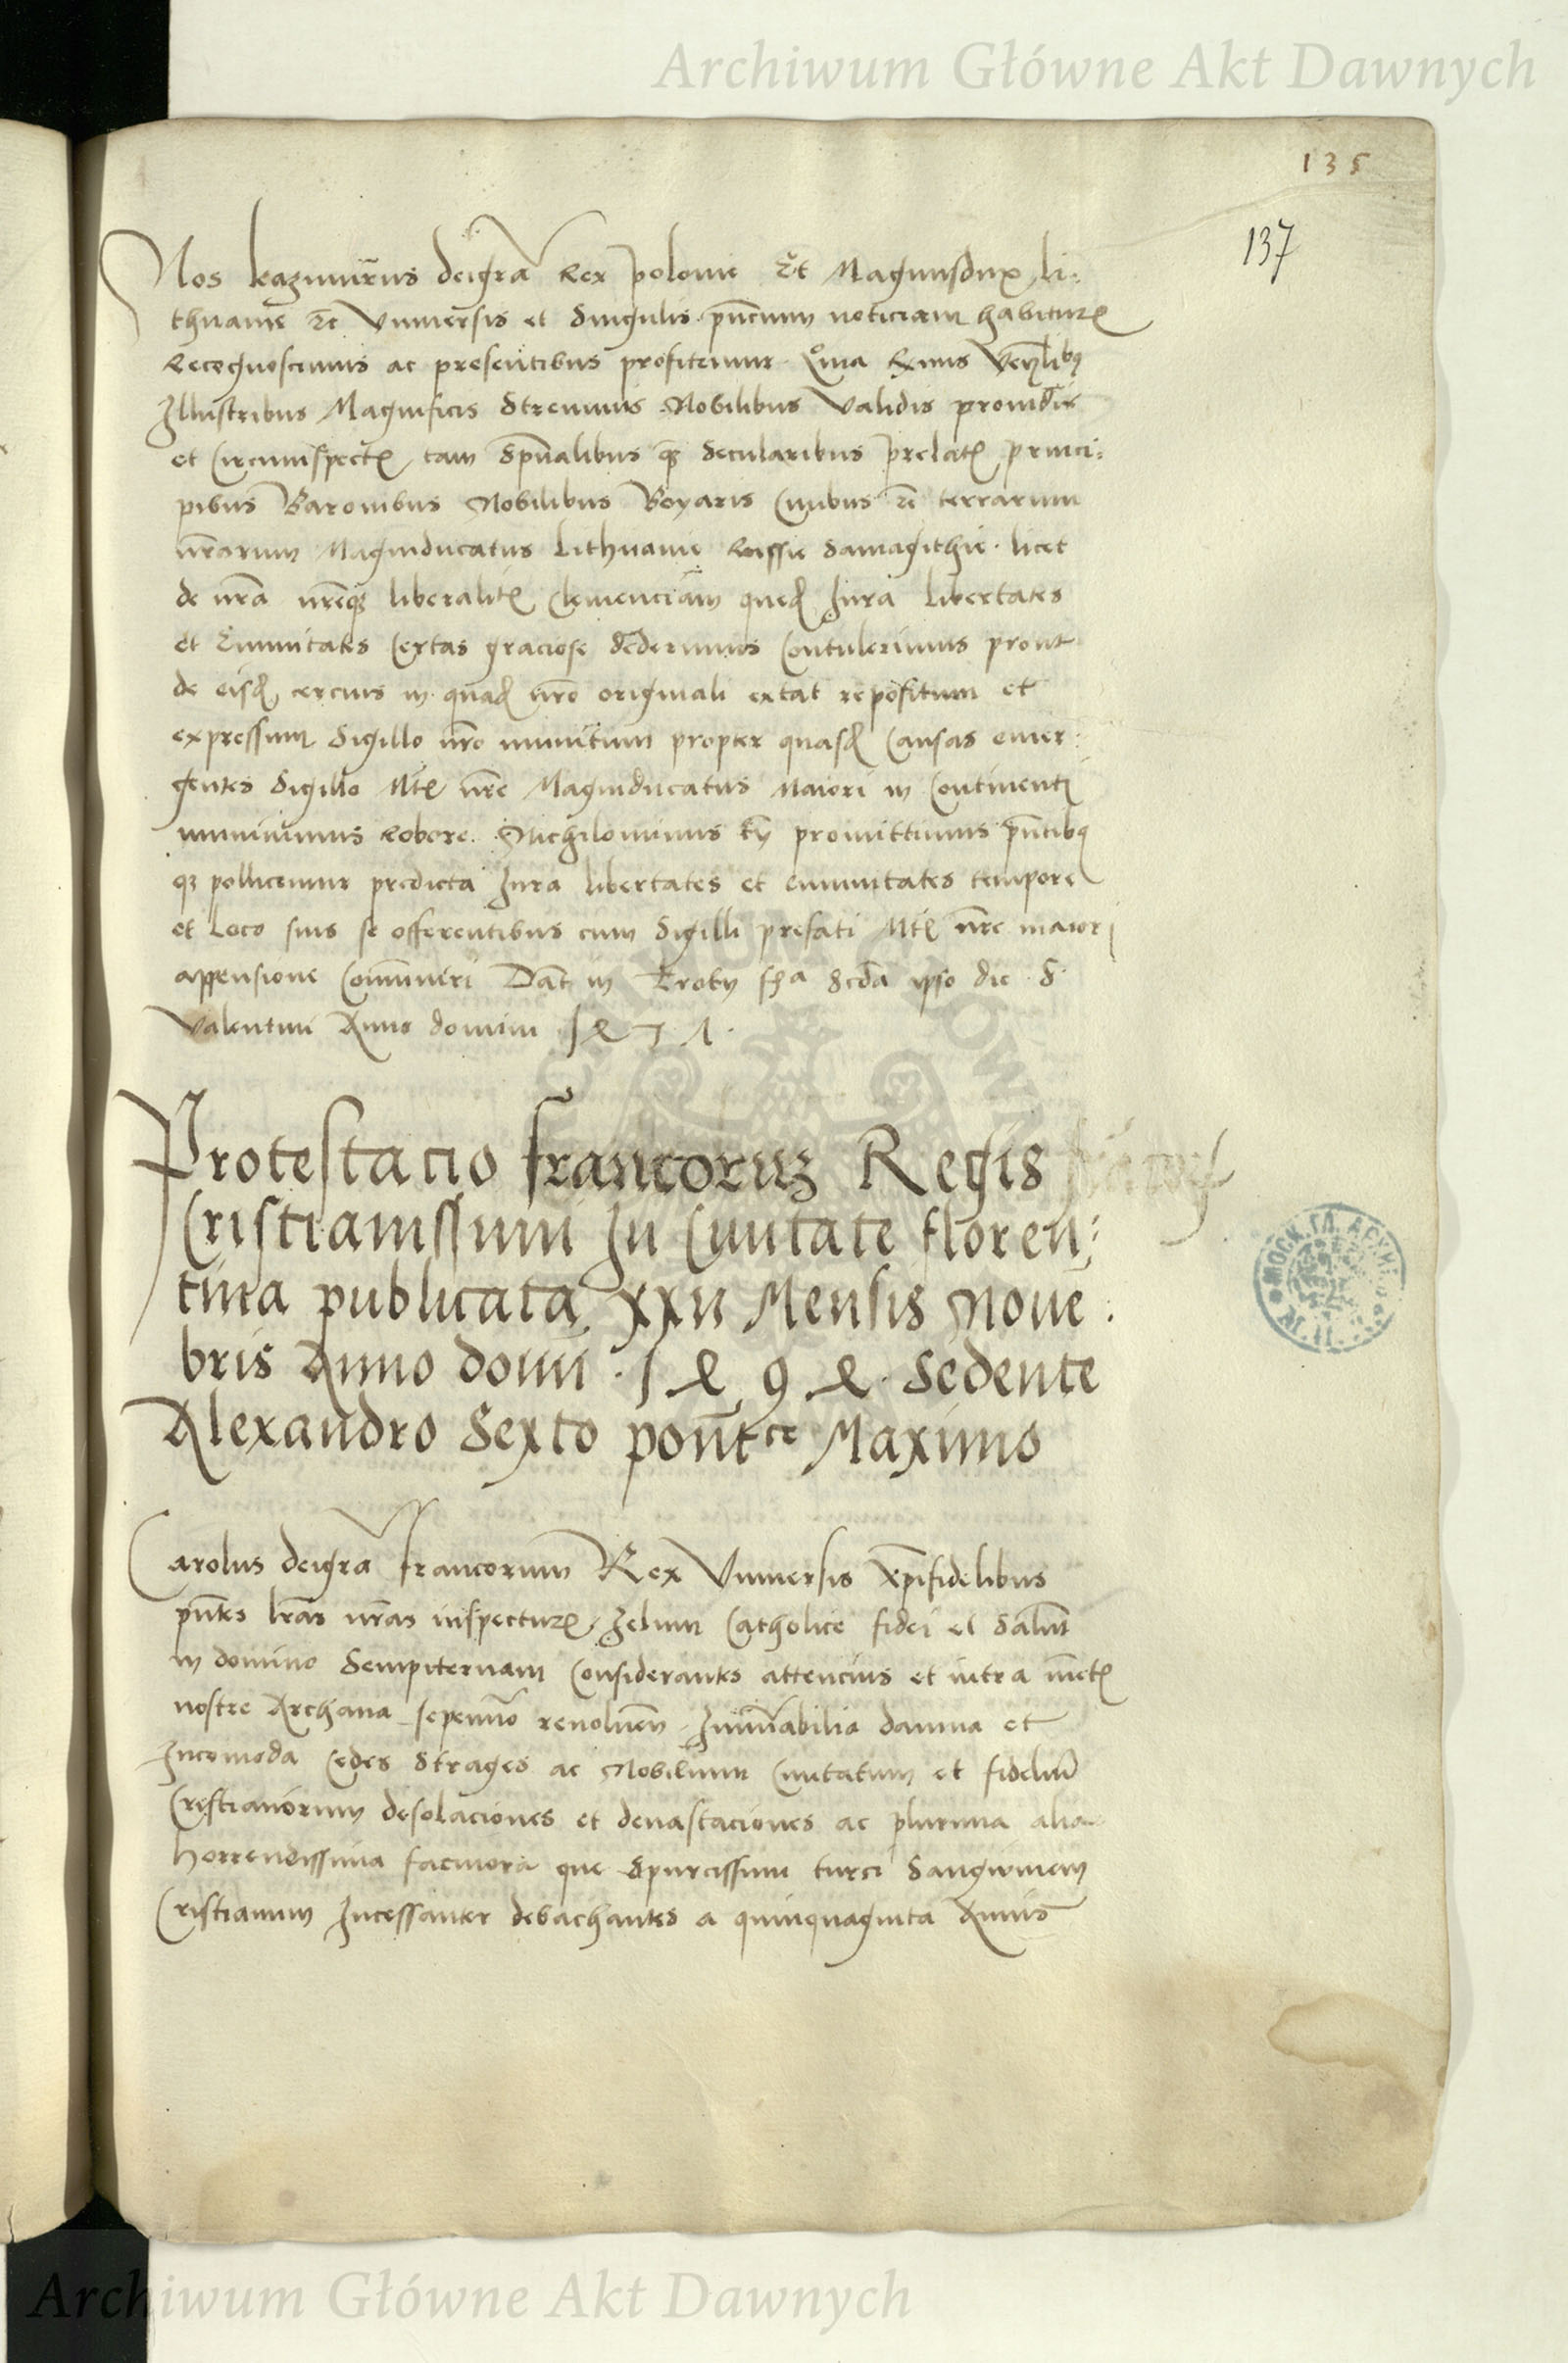 Archiwum Główne Akt Dawnych
135
137
Nos kazimirus deigrã Rex polonie Et Magnusdux Li:
thuanie Vniuersis et singulis pñcium noticiam habiturꝫ
Recognoscimus ac presentibus profitemur Quia
Illustribus Magnificis Strenuis Nobilibus Validis prouidis
et Circumspectꝫ tam spũalibus qꝫ secularibus prelatꝫ princi:
pibus Baronibus Nobilibus Boyaris Ciuibus terrarum
nrãrum Magniducatus Lithuanie Russie Samagithie licet
de nrã liberalitꝫ Clemenciam Iura Libertates
et Emunitates Certas graciose dederimus Contulerimus prout
de eisdꝫ cercius in quadꝫ nrõ originali extat repositum et
expressum Sigillo nrõ munitum propter quasdꝫ Causas emer:
gentes Sigillo nrẽ Magniducatus Maiori in Continentj
muniuimus Robore Nichilominus promittimus pñtibꝫ
qꝫ pollicemur predicta Iura libertates et emunitates tempore
et Loco suis se offerentibus cum Sigilli prefati nrẽ maiorj
appensione Cõmuneri Dat̃ in Troky scd̃a ipso die S
Valentini Anno domini
Protestacio francoruꝫ Regis
Cristianissimi In Ciuitate floren:
tina publicata xxii Mensis Noue:
bris Anno domi Sedente
Alexandro Sexto pont̃ce Maximo
Carolus deigrã francorum Rex Vniuersis Xp̃ifidelibus
pñtes lrãs nrãs inspecturꝫ zelum Catholice fidei et Salut̃
in domino Sempiternam Considerantes attencius et intra mẽtꝫ
nostre Archana sepenũo reuoluen̄ Innũabilia damna et
Incomoda Cedes Strages ac Nobilium Ciuitatum et fideliũ
Cristianorum desolaciones et deuastaciones ac plurima alia
horrendissima facinora que Spurcissimi turci Sanguinem
Cristianum Incessanter debachantes a quinquaginta Annis
Archiwum Główne Akt Dawnych